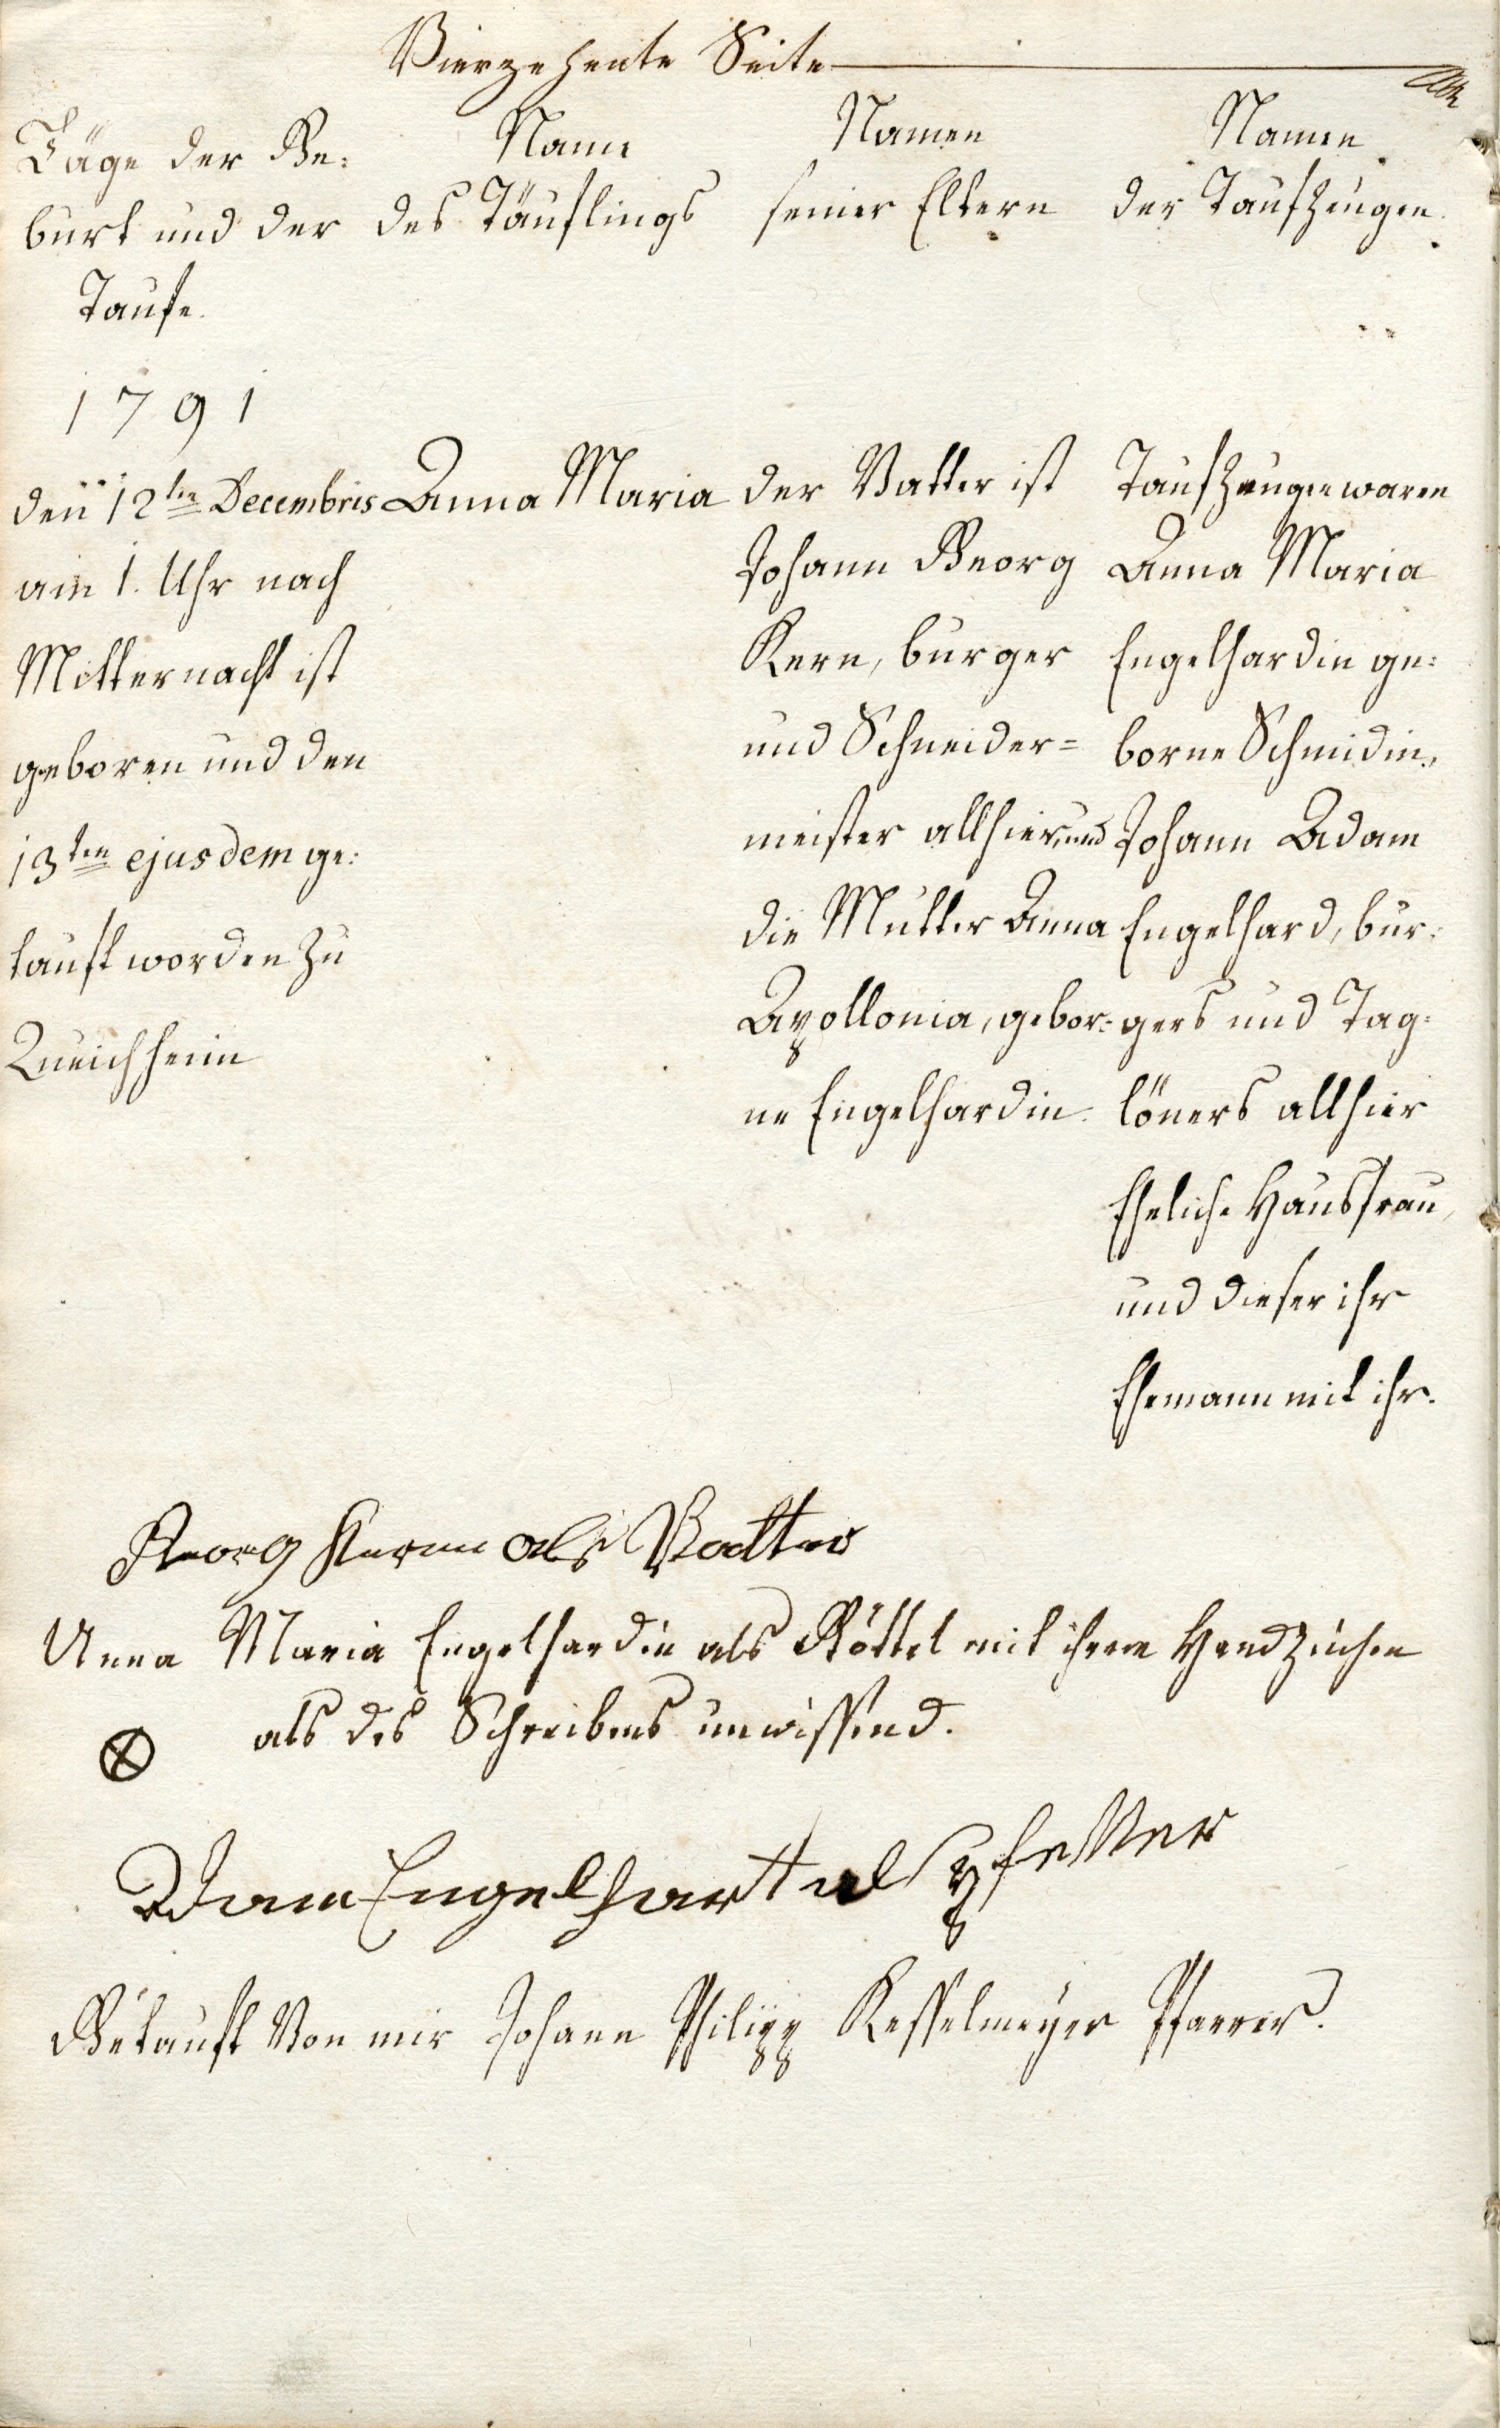 Vierzehente Seite
Täge der Ge:
burt und der
Taufe.
Name
des Täuflings
Namen
seiner Eltern
Namen
der Taufzeugen.
1791
den 12ten Decembris
am 1. Uhr nach
Mitternacht ist
geboren und den
13ten ejusdem ge:
tauft worden zu
Queichheim
Anna Maria
der Vatter ist
Johann Georg
Kern, burger
und Schneider=
meister allhier, und
die Mutter Anna
Apollonia, gebor:
ne Engelhardin.
Taufzeugen waren
Anna Maria
Engelhardin ge:
borne Schmidin,
Johann Adam
Engelhard, bur:
gers und Tag:
löners allhier
Eheliche Hausfrau,
und dieser ihr
Ehemann mit ihr.
Georg Kern als Vatter
Anna Maria Engelhardin als Göttel mit ihrem Handzeichen
als des Schreibens unwissend.
Adam Engelhart als pfetter
Getauft Von mir Johann Philipp Kesselmeyer Pfarrer.